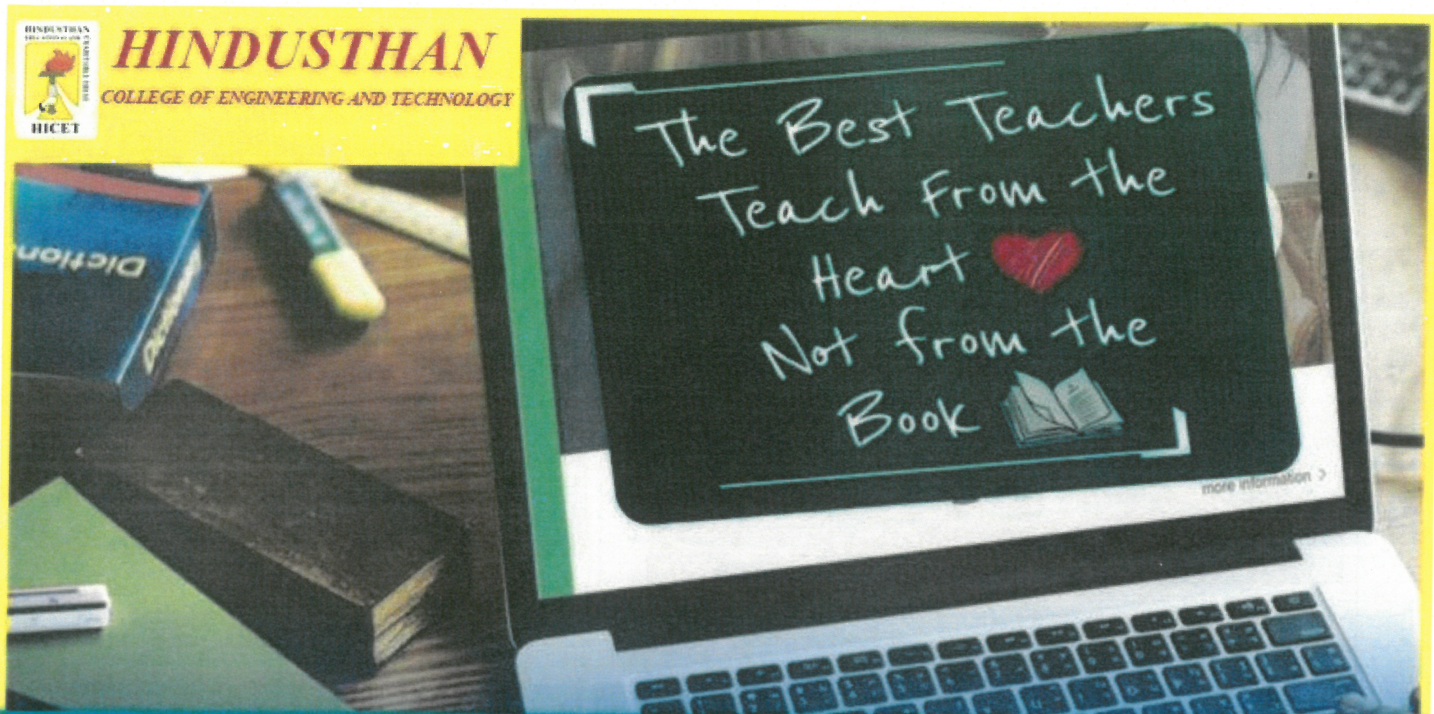 HINDUSTHAN
EDUCATIONAL AND
CHARITABLE TRUST
HICET
HINDUSTHAN
COLLEGE OF ENGINEERING AND TECHNOLOGY
The Best Teachers
Teach From the
Heart
Not from the
Book
more information >
Diction